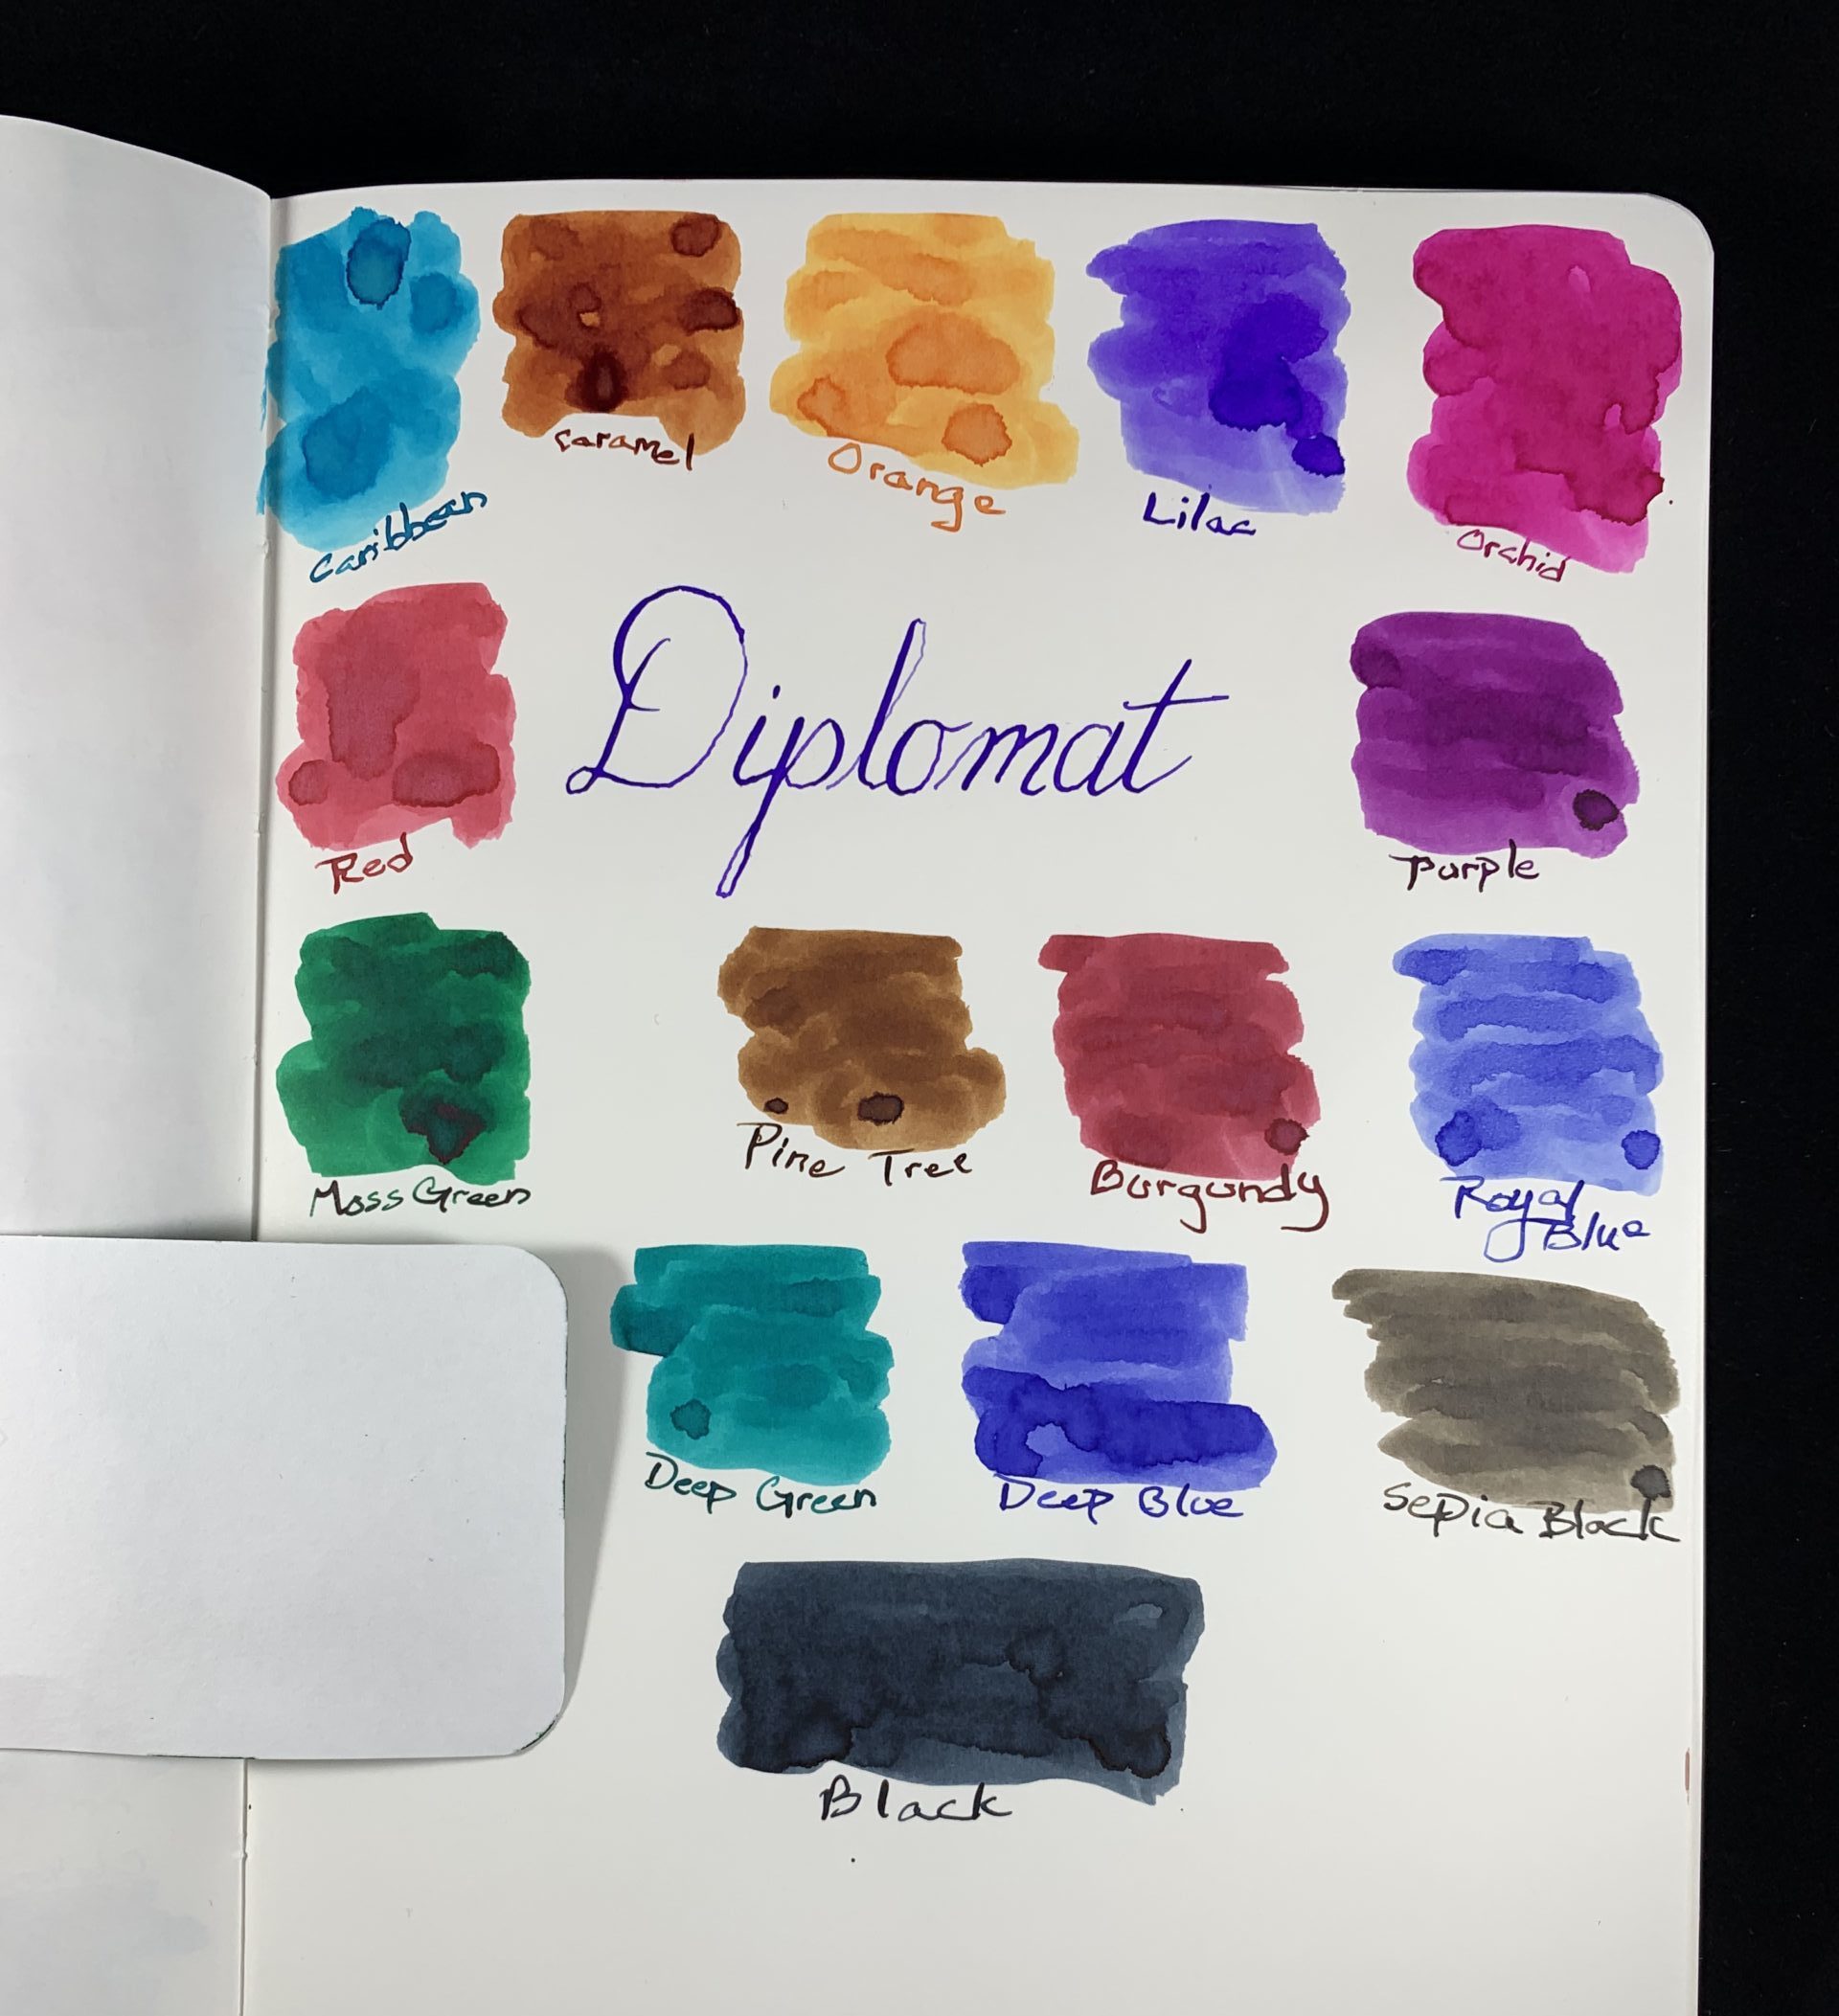 Caribbean
Caramel
Orange
Lilac
Orchid
Red
Diplomat
Purple
Moss Green
Pine Tree
Burgundy
Royal
Blue
Deep Green
Deep Blue
Sepia Black
Black